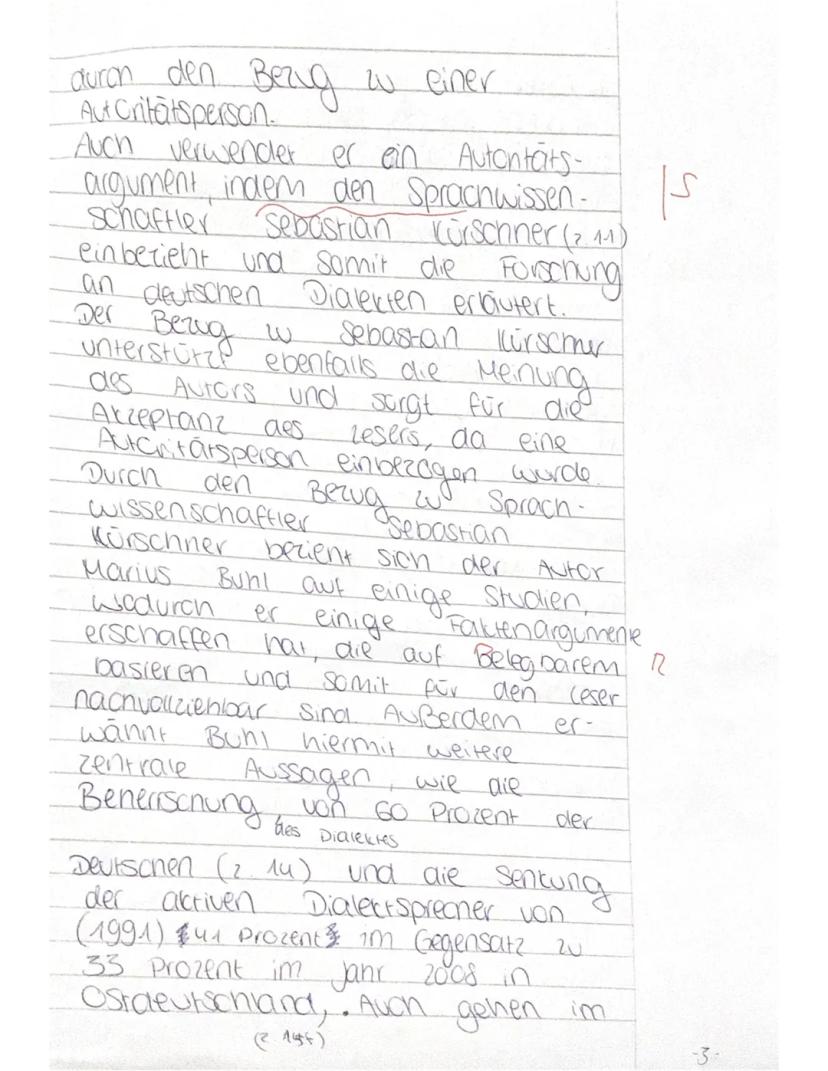 durch den Bezug zu einer
Autoritätsperson.
Auch verwendet er ein Autoritäts-
argument, indem den Sprachwissen-
schaftler Sebastian Kürschner (Z. 11)
einbezieht und somit die Forschung
an deutschen Dialekten erläutert.
Der Bezug zu Sebastan Kürschner
unterstützt ebenfalls die Meinung
des Autors und sorgt für die
Akzeptanz des Lesers, da eine
Autoritätsperson einbezogen wurde.
Durch den Bezug zu Sprach-
wissenschaftler Sebastian
Kürschner bezieht sich der Autor
Marius Buhl auf einige Studien,
wodurch er einige Faktenargumente
erschaffen hat, die auf Belegbarem
basieren und somit für den Leser
nachvollziehbar sind. Außerdem er-
wähnt Buhl hiermit weitere
zentrale Aussagen, wie die
Beherrschung von 60 Prozent der
des Dialektes
Deutschen (Z. 14) und die Senkung
der aktiven Dialektsprecher von
(1991) 41 Prozent im Gegensatz zu
33 Prozent im Jahr 2008 in
Ostdeutschland,. Auch gehen im
-3-